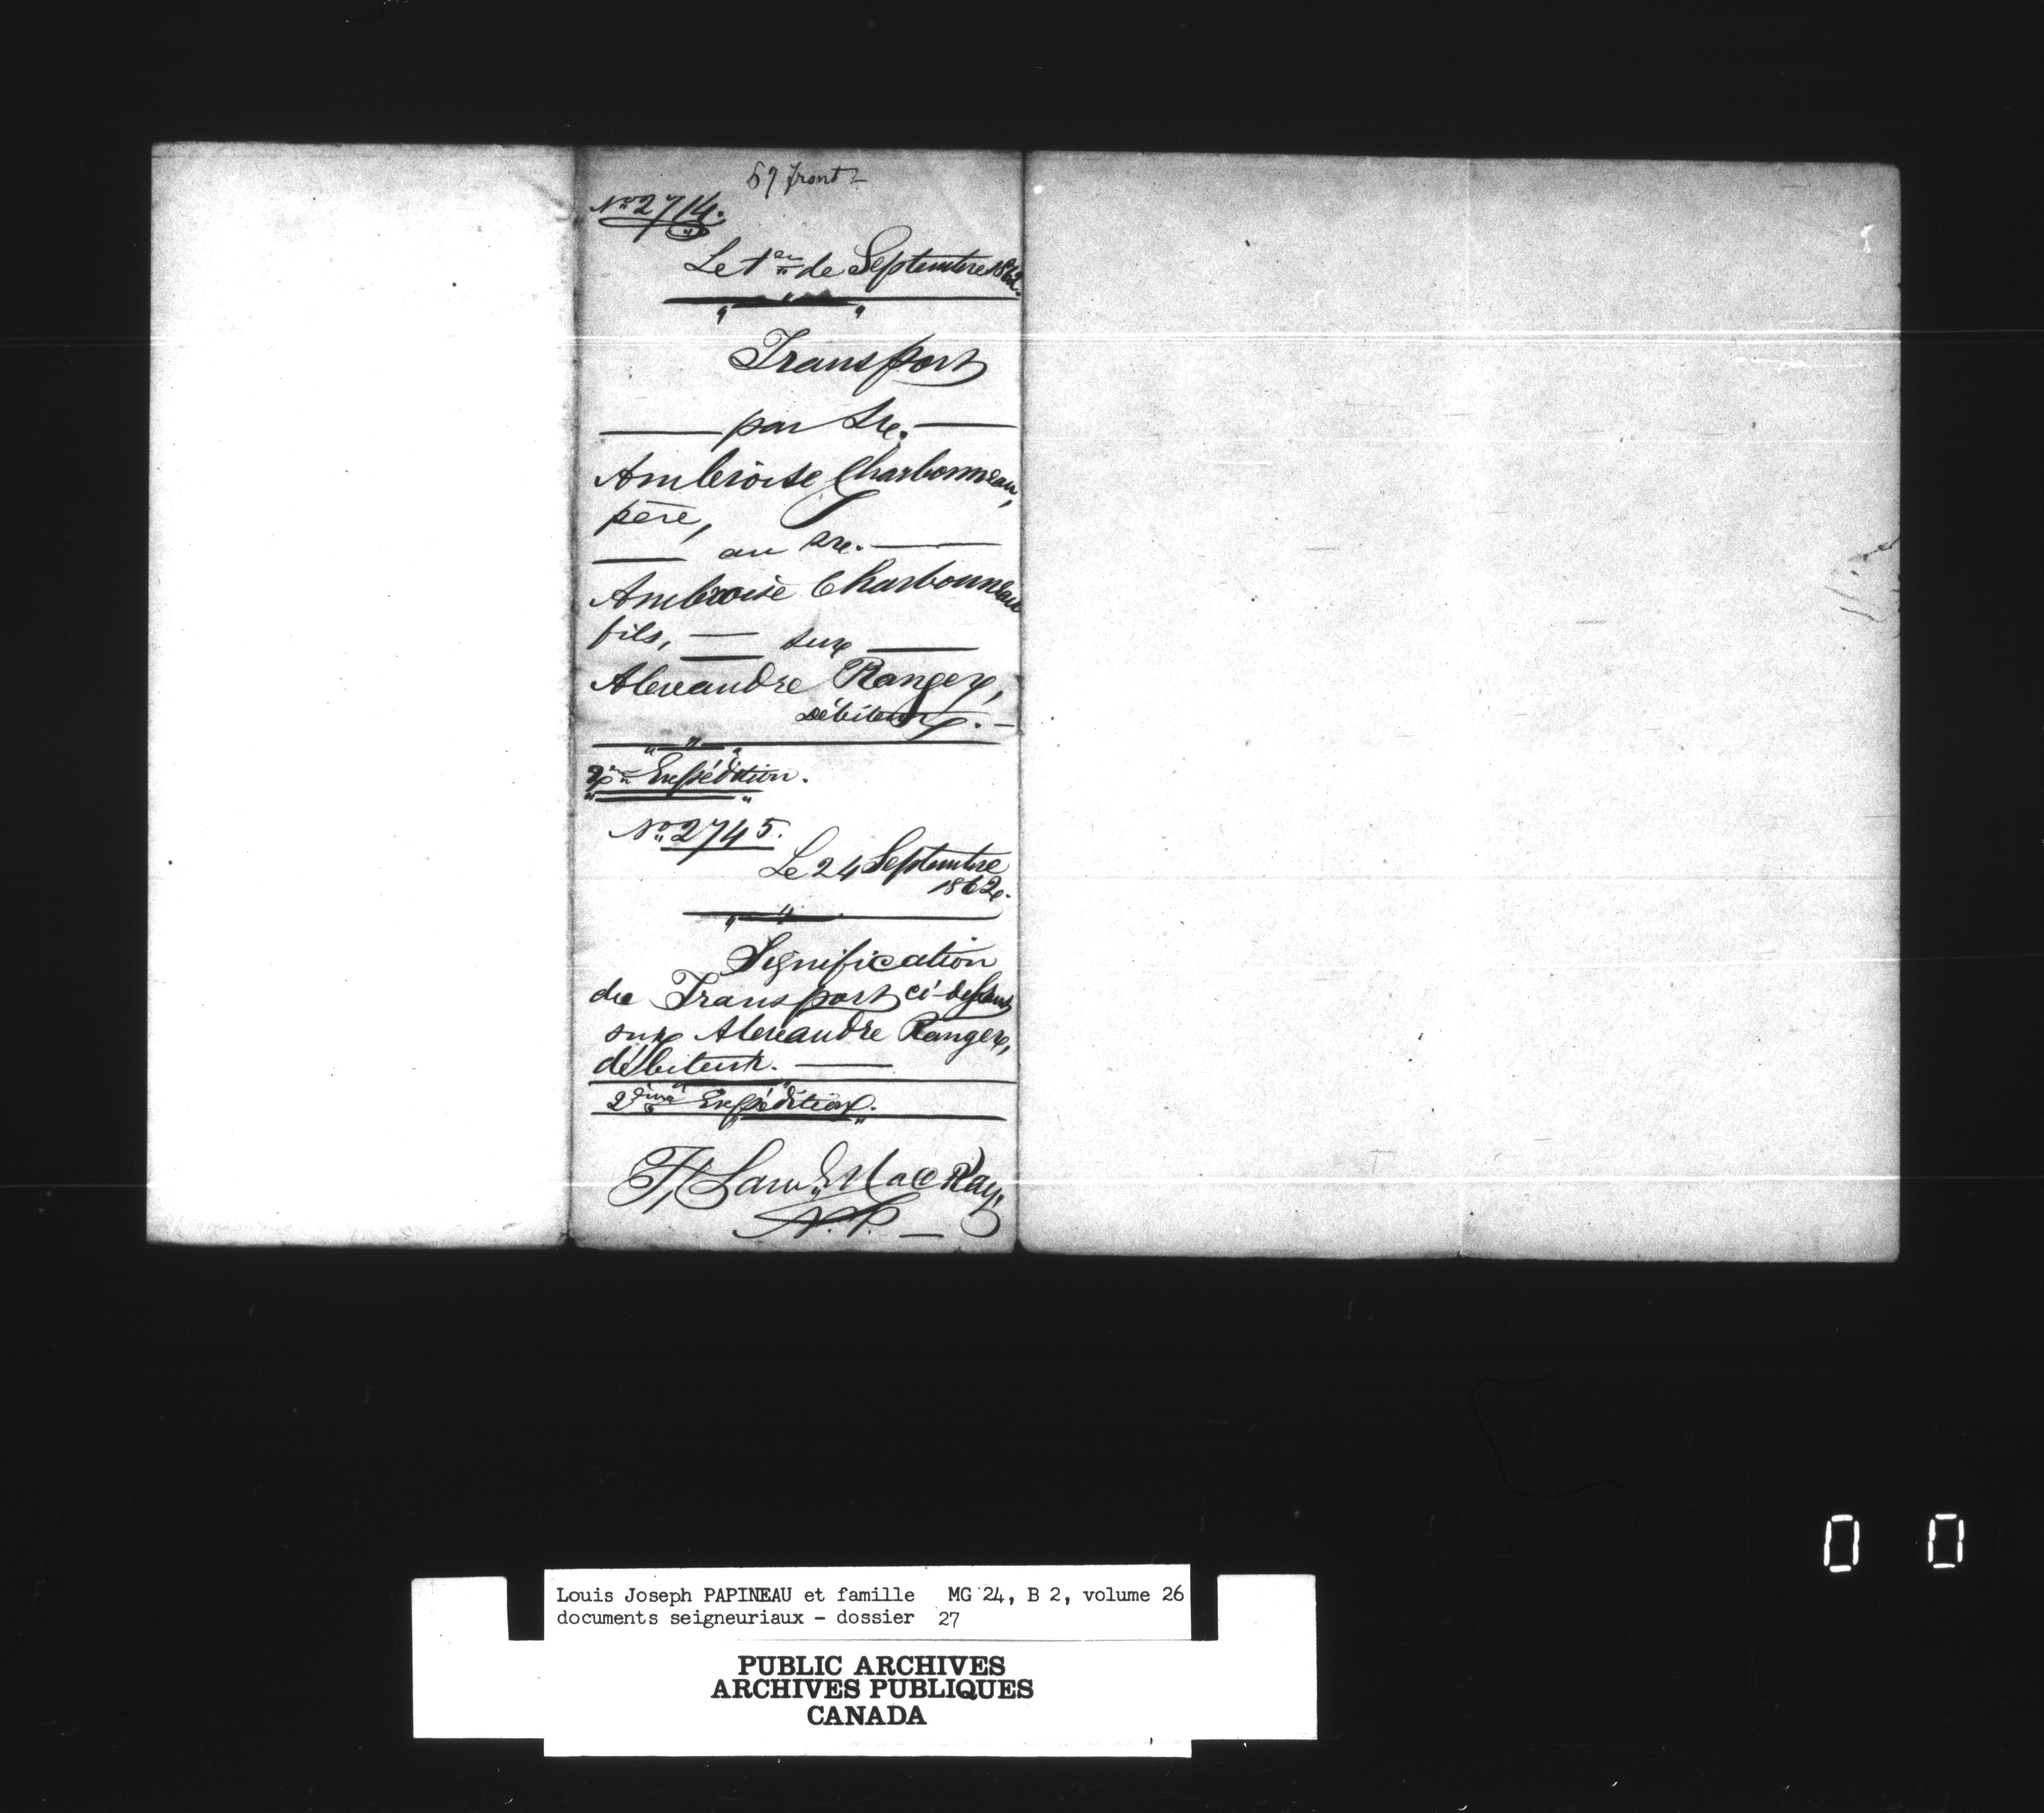 57 front -
No 2714.
Le 1er de Septembre 1862.
Transport
par Sre.
Ambroise Charbonneau,
père,
au sre.
Ambroise Charbonneau
fils, — sur
Alexandre Ranger,
débiteur. -
2me Expédition.
No 2745.
Le 24 Septembre
1862.
Signification
du Transport ci-dessus
sur Alexandre Ranger,
débiteur.
2ième Expédition.
MacKay,
N.P.
0 0
Louis Joseph PAPINEAU et famille MG 24, B 2, volume 26
documents seigneuriaux - dossier 27
PUBLIC ARCHIVES
ARCHIVES PUBLIQUES
CANADA